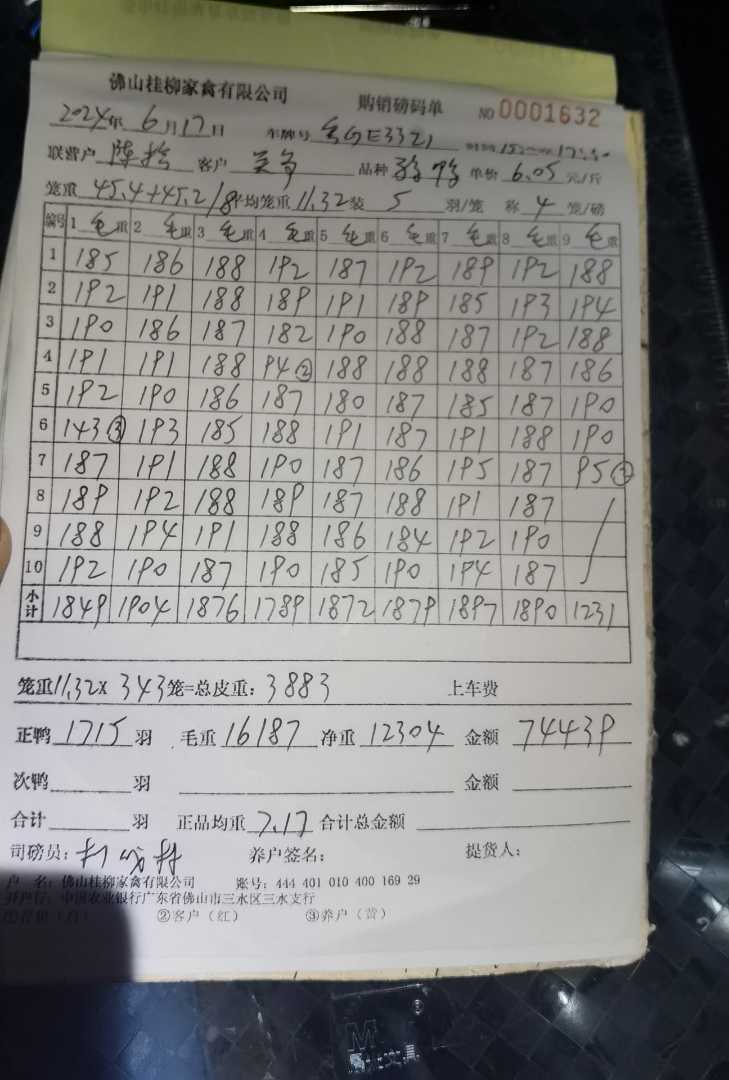 佛山桂柳家禽有限公司 购销磅码单 NO 0001632
2024年 6月17日 车牌号 E3321 时间
联营户 陈 客户 品种 单价 6.05 元/斤
笼重 45.4+45.2/8 平均笼重 11.32 装 5 羽/笼 称 4 笼/磅
编号 1 毛重 2 毛重 3 毛重 4 毛重 5 毛重 6 毛重 7 毛重 8 毛重 9 毛重
1 185 186 188 192 187 192 189 192 188
2 192 191 188 189 191 189 185 193 194
3 190 186 187 182 190 188 187 192 188
4 191 191 188 94② 188 188 188 187 186
5 192 190 186 187 180 187 185 187 190
6 143③ 193 185 188 191 187 191 188 190
7 187 191 188 190 187 186 195 187 95②
8 189 192 188 189 187 188 191 187
9 188 194 191 188 186 184 192 190
10 192 190 187 190 185 190 194 187
小计 1849 1904 1876 1789 1872 1879 1897 1890 1231
笼重11.32×343笼=总皮重:3883 上车费
正鸭 1715 羽 毛重 16187 净重 12304 金额 74439
次鸭 羽 金额
合计 羽 正品均重 7.17 合计总金额
司磅员: 养户签名: 提货人:
户 名:佛山桂柳家禽有限公司 账号:444 401 010 400 169 29
开户行:中国农业银行广东省佛山市三水区三水支行
②客户(红) ③养户(黄)